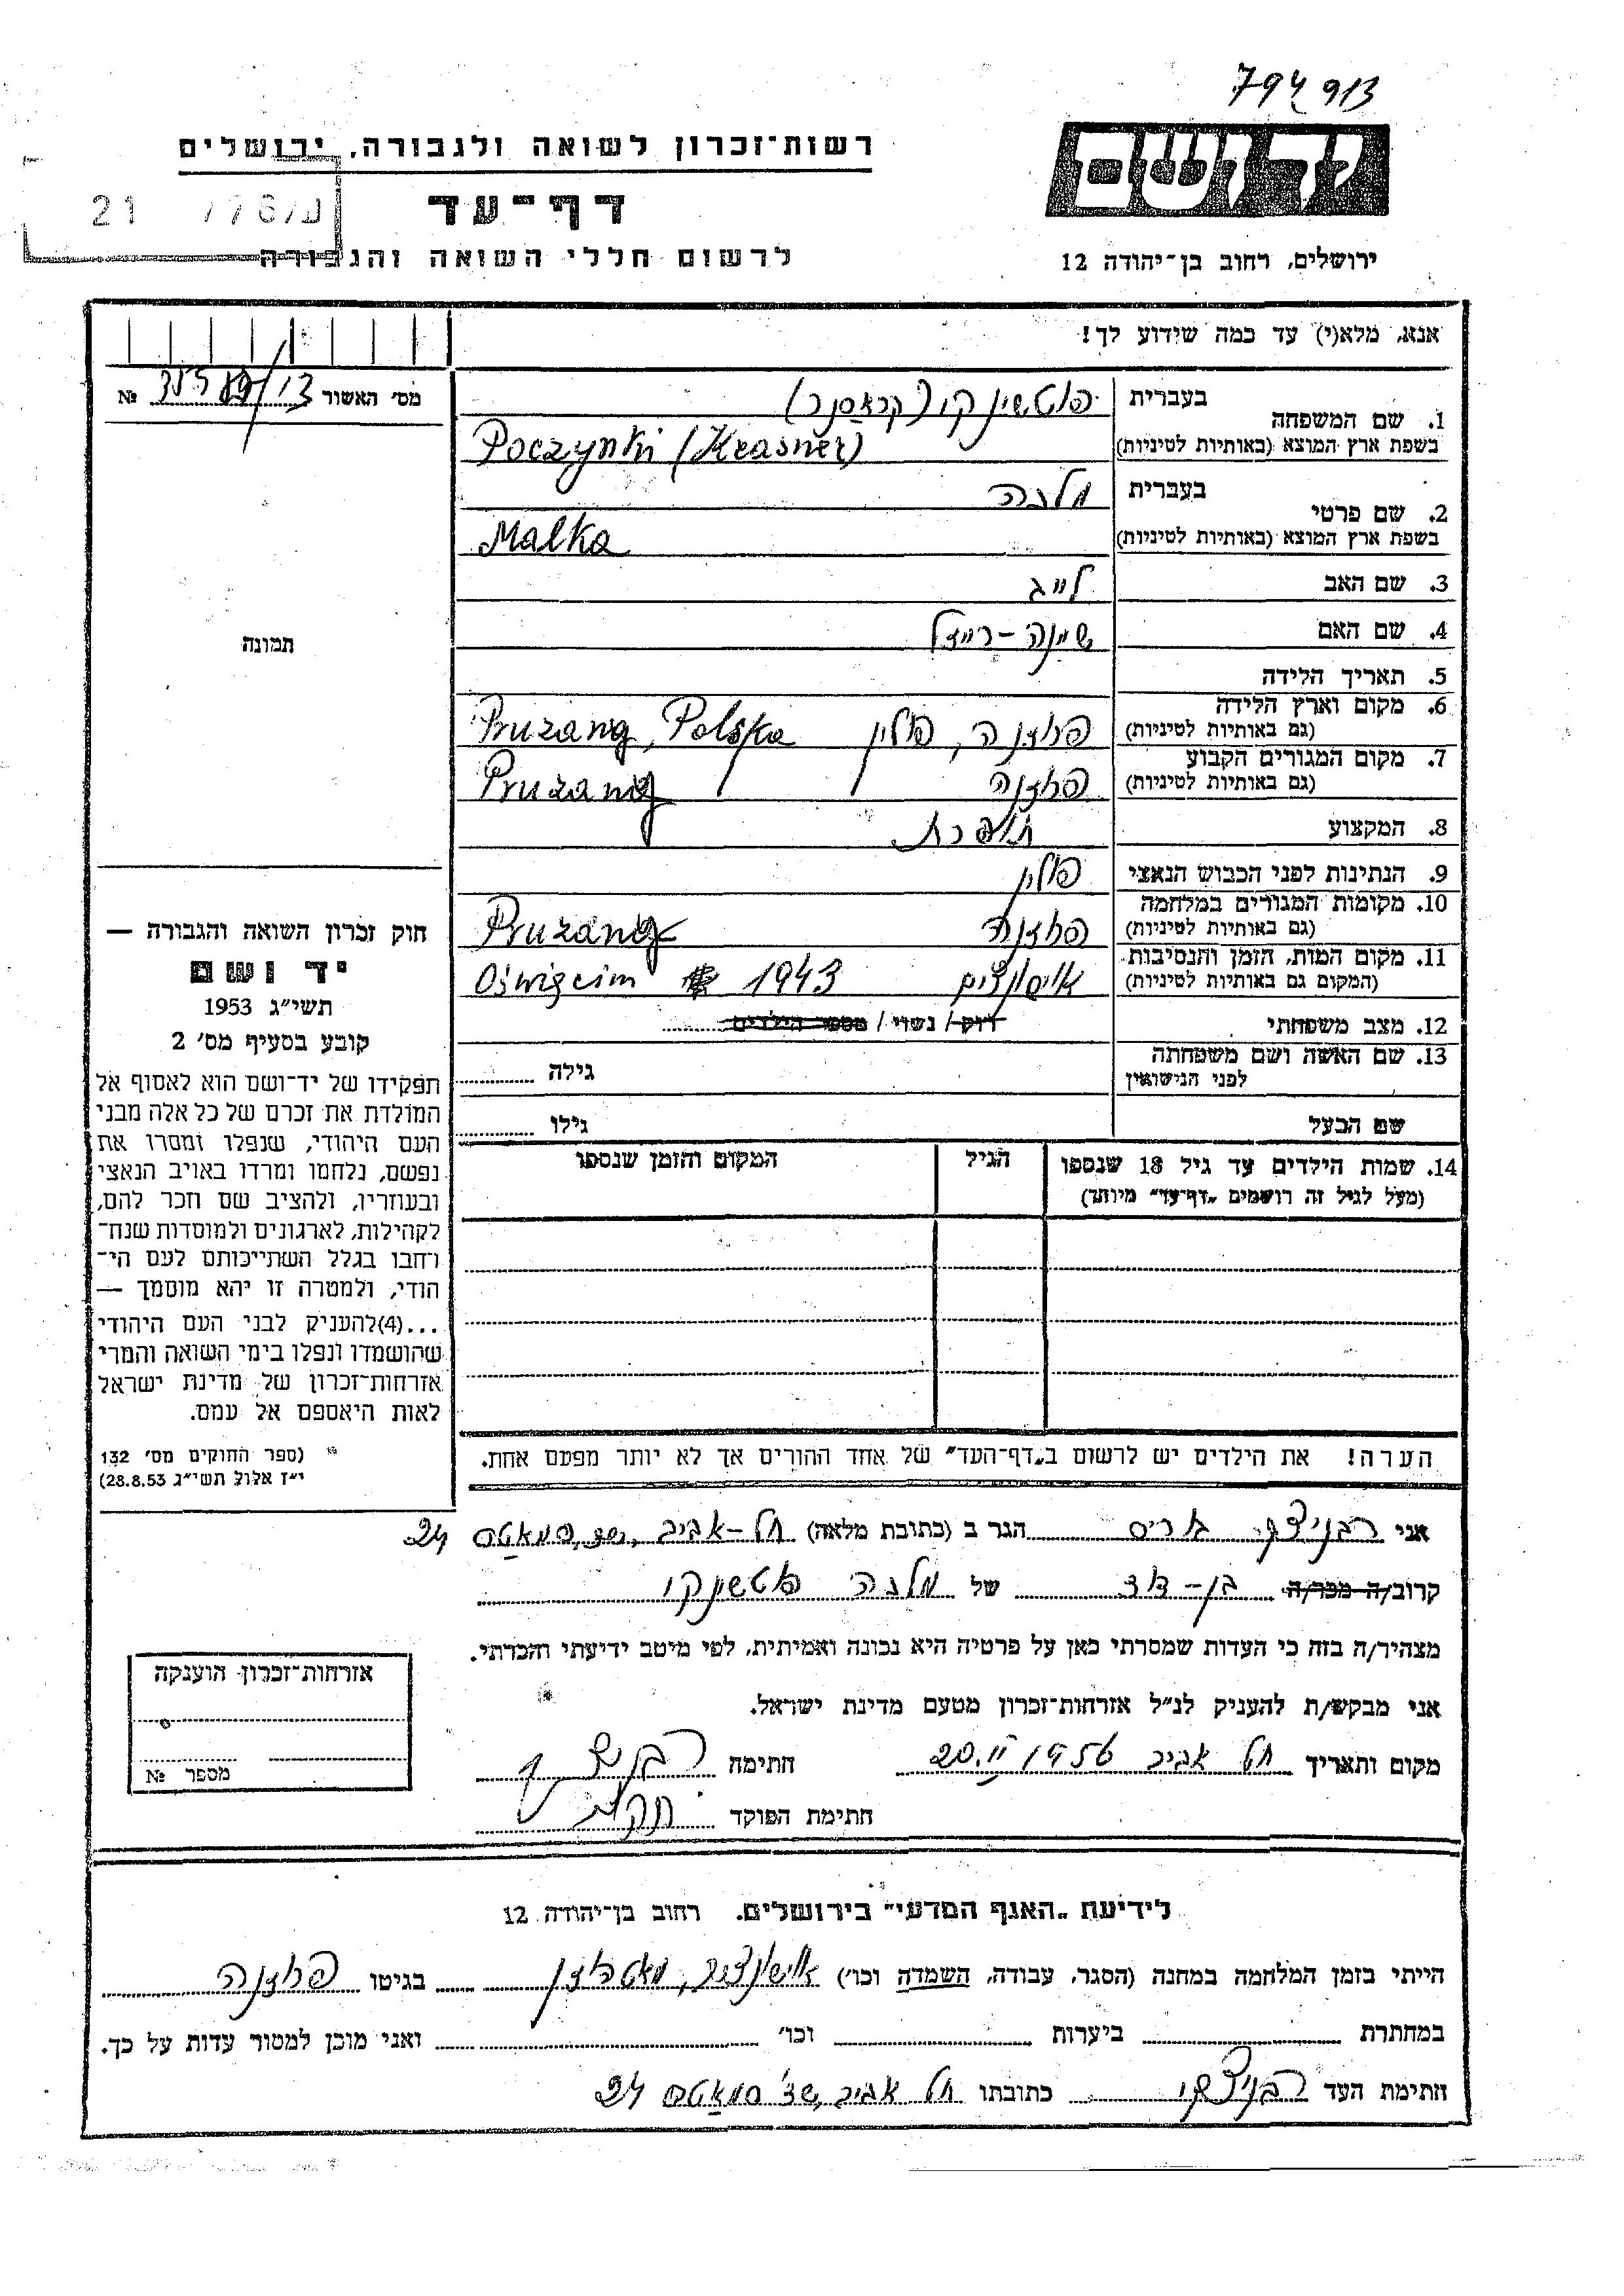 794913
יד ושם
רשות־זכרון לשואה ולגבורה, ירושלים
דף־עד
לרשום חללי השואה והגבורה
21
ירושלים, רחוב בן־יהודה 12
אנא, מלא(י) עד כמה שידוע לך!
מס' האשור № /13
1. שם המשפחה בעברית פוטשינקי (קראסנר)
בשפת ארץ המוצא (באותיות לטיניות) Poczynki (Krasner)
2. שם פרטי בעברית מלכה
בשפת ארץ המוצא (באותיות לטיניות) Malka
3. שם האב לייב
4. שם האם שיינה - רייזל
תמונה
5. תאריך הלידה
6. מקום וארץ הלידה (גם באותיות לטיניות) פרוזנה, פולין Pruzana, Polska
7. מקום המגורים הקבוע (גם באותיות לטיניות) פרוזנה Pruzana
8. המקצוע תופרת
9. הנתינות לפני הכבוש הנאצי פולין
10. מקומות המגורים במלחמה (גם באותיות לטיניות) פרוזנה Pruzana
11. מקום המות, הזמן והנסיבות (המקום גם באותיות לטיניות) Oświęcim 1943
12. מצב משפחתי רוק / נשוי / מספר הילדים
13. שם האשה ושם משפחתה לפני הנישואין גילה
שם הבעל גילו
14. שמות הילדים עד גיל 18 שנספו הגיל המקום והזמן שנספו
(מעל לגיל זה רושמים „דף־עד" מיוחד)
חוק זכרון השואה והגבורה —
יד ושם
תשי"ג 1953
קובע בסעיף מס' 2
תפקידו של יד־ושם הוא לאסוף אל
המולדת את זכרם של כל אלה מבני
העם היהודי, שנפלו ומסרו את
נפשם, נלחמו ומרדו באויב הנאצי
ובעוזריו, ולהציב שם וזכר להם,
לקהילות, לארגונים ולמוסדות שנח־
רבו בגלל השתייכותם לעם הי־
הודי, ולמטרה זו יהא מוסמך —
...(4)להעניק לבני העם היהודי
שהושמדו ונפלו בימי השואה והמרי
אזרחות־זכרון של מדינת ישראל
לאות היאספם אל עמם.
(ספר החוקים מס' 132
י"ז אלול תשי"ג 28.8.53)
הערה! את הילדים יש לרשום ב„דף־העד" של אחד ההורים אך לא יותר מפעם אחת.
אני רבניצקי בוריס הגר ב (כתובת מלאה) תל-אביב, 24
קרוב/ה מכר/ה בן-דוד של מלכה פוטשינקי
מצהיר/ה בזה כי העדות שמסרתי כאן על פרטיה היא נכונה ואמיתית, לפי מיטב ידיעתי והכרתי.
אני מבקש/ת להעניק לנ"ל אזרחות־זכרון מטעם מדינת ישראל.
אזרחות־זכרון הוענקה
מספר №
מקום ותאריך תל אביב 20.II 1956 חתימה
חתימת הפוקד
לידיעת „האגף המדעי" בירושלים, רחוב בן־יהודה 12
הייתי בזמן המלחמה במחנה (הסגר, עבודה, השמדה וכו') בגיטו פרוזנה
במחתרת ביערות וכו' ואני מוכן למסור עדות על כך.
חתימת העד רבניצקי כתובתו תל אביב, 24